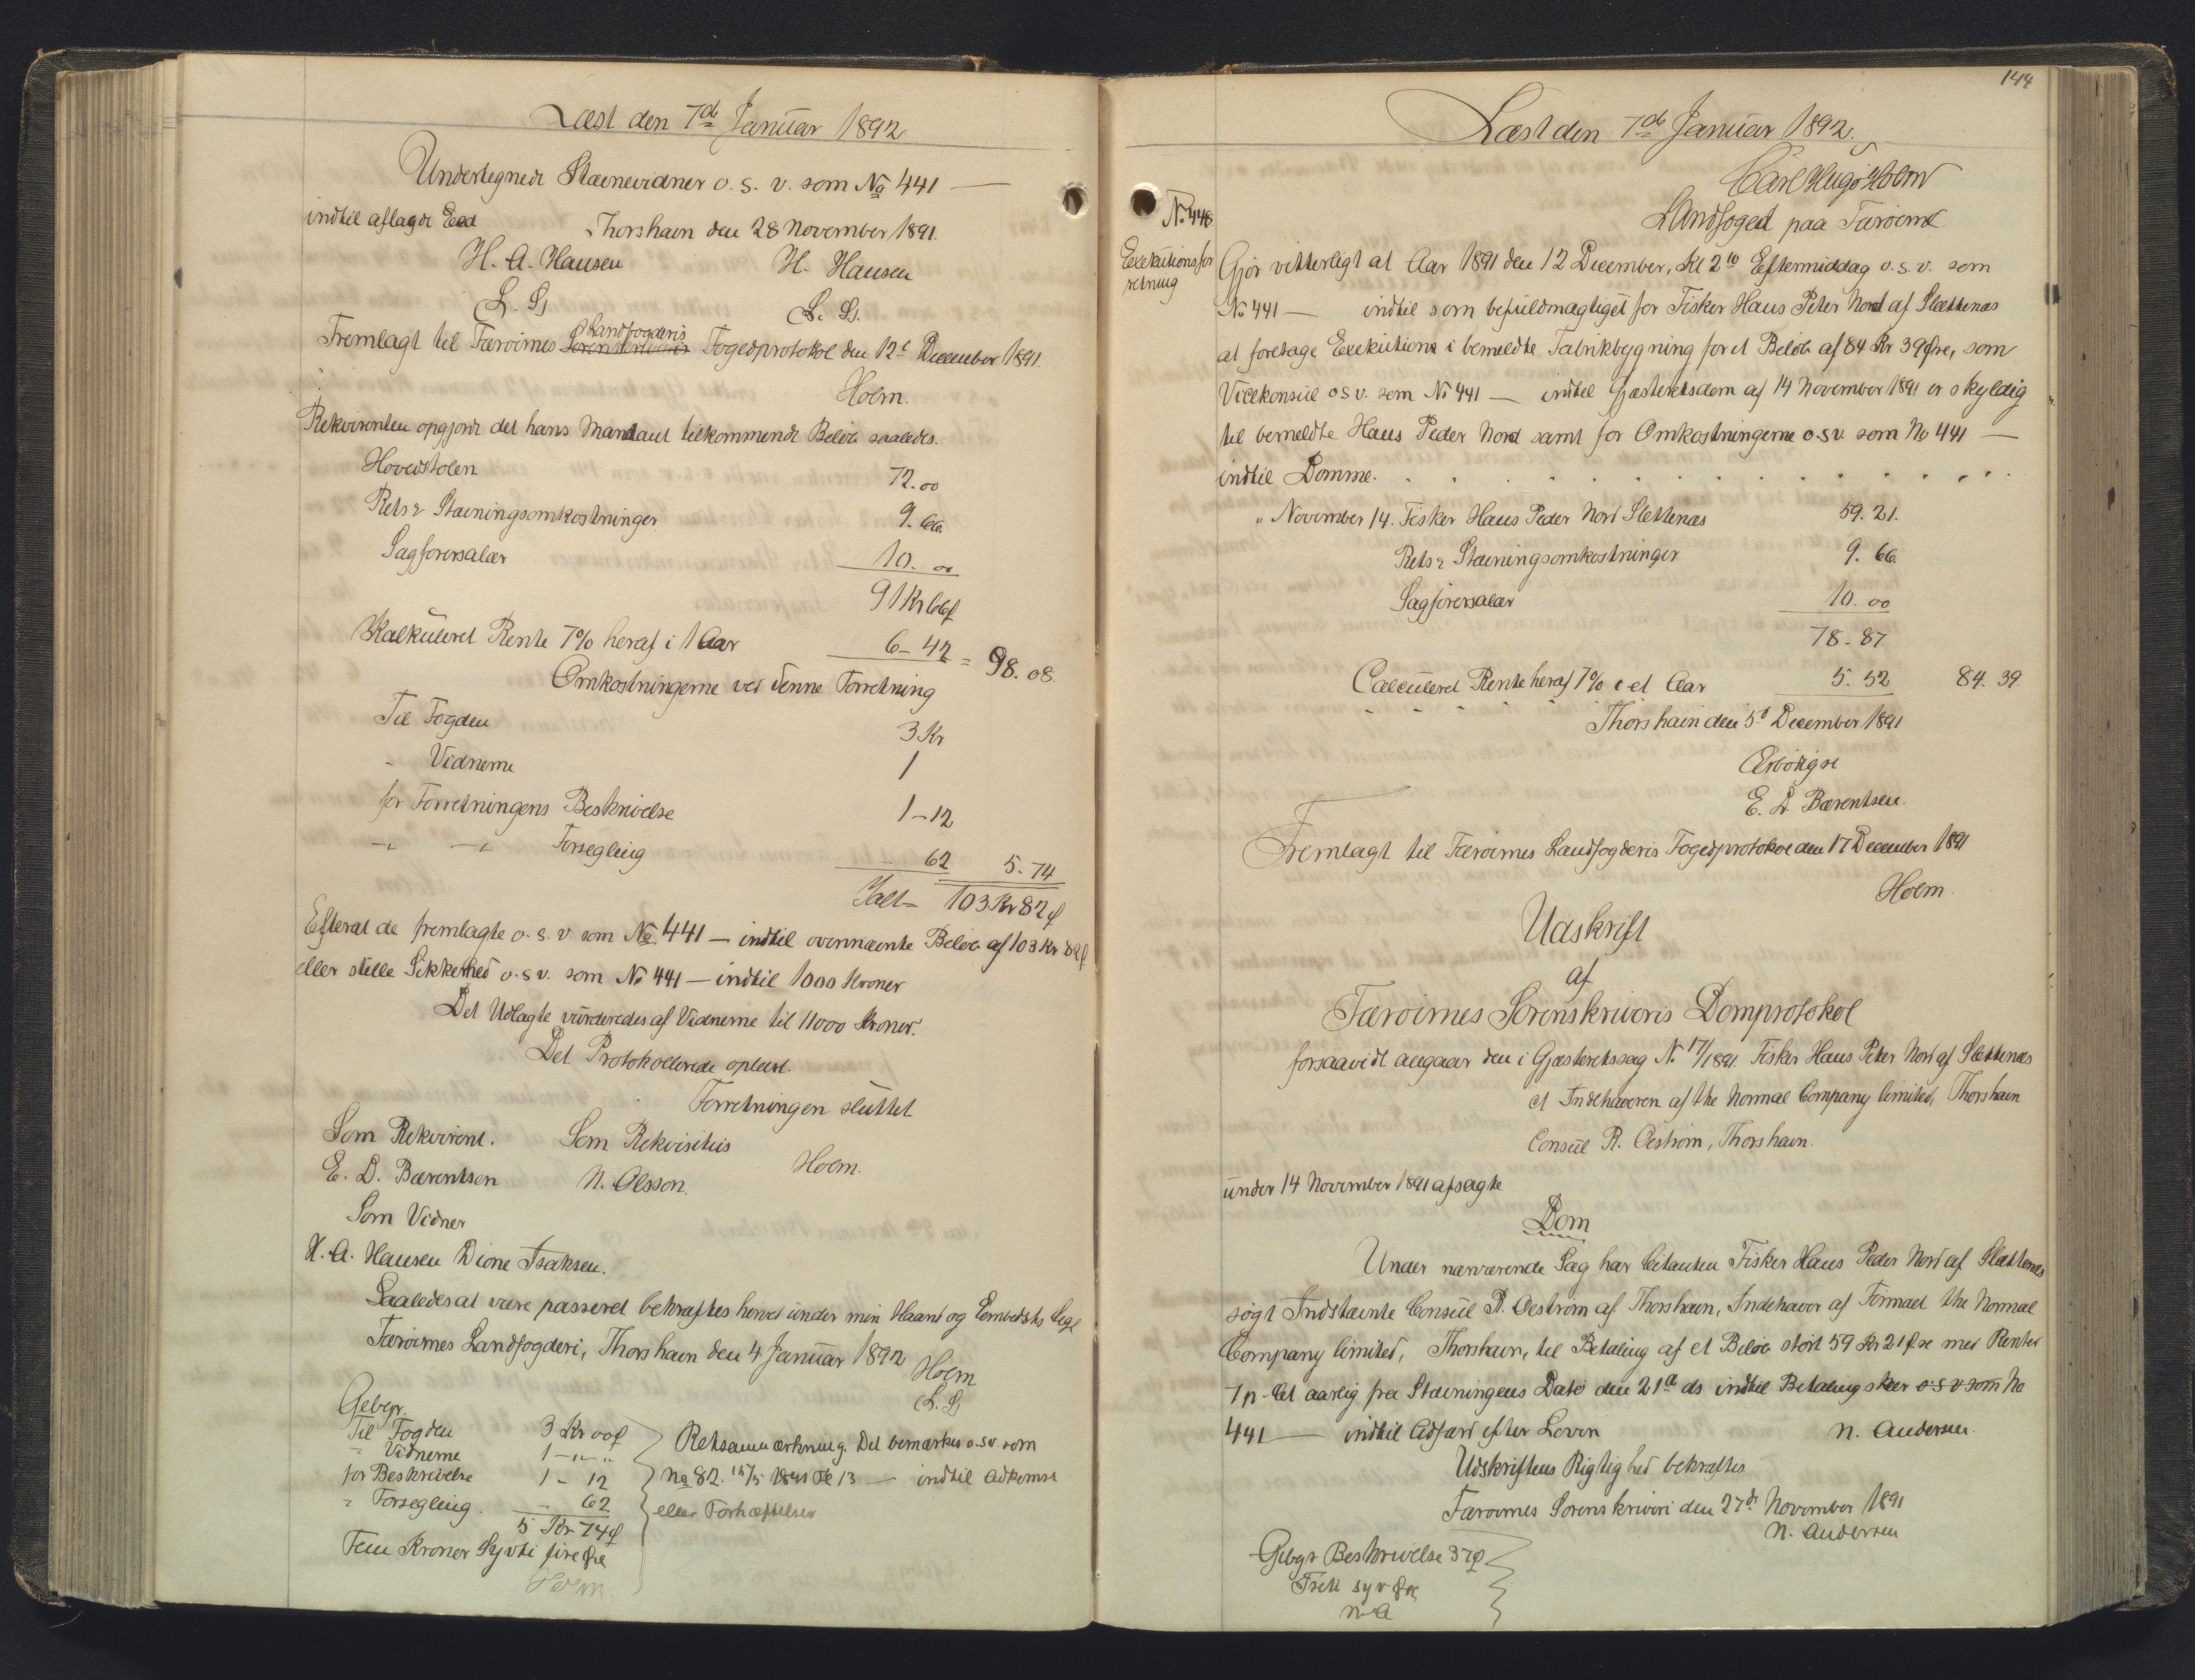 Læst den 7de Januar 1892
Undertegnede Stævnevidner o. s. v. som No 441 —
indtil aflagde Eed
Thorshavn den 28 November 1891.
H. A. Hansen H. Hansen
L. S. L. S.
Landfogderis
Fremlagt til Færøernes Sorenskriveris Fogedprotokol den 12t December 1891.
Holm.
Rekvirenten opgjorde det hans Mandant tilkommende Beløb saaledes.
Hovedstolen 72.00
Rets & Stævningsomkostninger 9.66
Sagførersalær 10.00
91 Kr 66 Ø
Kalkuleret Rente 7% heraf i 1 Aar 6-42 = 98.08.
Omkostningerne ved denne Forretning
Til Fogden 3 Kr
" Vidnerne 1
for Forretningens Beskrivelse 1-12
-"- -"- Forsegling 62 5.74
Ialt = 103 Kr 82 Ø
Efterat de fremlagte o. s. v. som No 441 — indtil ovennævnte Beløb af 103 Kr 82 Ø
eller stille Sikkerhed o. s. v. som No 441 — indtil 1000 Kroner
Det Udlagte vurderedes af Vidnerne til 11000 Kroner.
Det Protokollerede oplæst.
Forretningen sluttet
Som Rekvirent. Som Rekvisitus
E. D. Bærentsen N. Olsson. Holm.
Som Vidner
H. A. Hansen Dione Isaksen.
Saaledes at være passeret bekræftes herved under min Haand og Embedets Segl
Færøernes Landfogderi, Thorshavn den 4 Januar 1892
Holm
(L. S.)
Gebyr.
Til Fogden 3 Kr 00 Ø
" Vidnerne 1 - " - "
for Beskrivelse 1 - 12
" Forsegling. - 62
5 Kr 74 Ø
Fem Kroner Syvti fire Øre
Holm.
Retsanmærkning. Det bemærkes o.s.v. som
No 82. 15/5 1841 13 — indtil Adkomst
eller Forhæftelser
144
Læst den 7de Januar 1892.
Carl Hugo Holm
Landfoged paa Færøerne
No. 448
Exekutionsfor
retning
Gjør vitterligt at Aar 1891 den 12 December, Kl 2 10 Eftermiddag o. s. v. som
No 441 — indtil som befuldmægtiget for Fisker Hans Peter Nord af Slættenæs
at foretage Exekution i bemeldte Fabrikbygning for et Beløb af 84 Kr 39 Øre, som
Vicekonsul o s v. som No 441 — indtil Gjæsteretsdom af 14 November 1891 er skyldig
til bemeldte Hans Peder Nord samt for Omkostningerne o.s.v. som No 441 —
indtil Domme. . . . . . . . . . . . . .
" November 14. Fisker Hans Peder Nord Slettenæs 59.21.
Rets & Stævningsomkostninger 9.66.
Sagførersalær 10.00
78-87.
Calculeret Rente heraf 7% i et Aar 5.52 84.39.
Thorshavn den 5t December 1891
Ærbødigst
E. D. Bærentsen.
Fremlagt til Færøernes Landfogderis Fogedprotokol den 17 December 1891
Holm.
Udskrift
af
Færøernes Sorenskriveris Domprotokol
forsaavidt angaar den i Gjæsteretssag No. 17/1891. Fisker Hans Peter Nord af Slettenæs
ct Indehaveren af the Normal Company limited, Thorshavn
Consul R. Oestrøm, Thorshavn.
under 14 November 1891 afsagte
Dom
Under nærværende Sag har Citanten Fisker Hans Peder Nord af Slættenæs
søgt Indstævnte Consul R. Oestrøm af Thorshavn, Indehaver af Firmaet the Normal
Company limited, Thorshavn, til Betaling af et Beløb stort 59 Kr 21 Øre med Renter
7 p. Ct aarlig fra Stævningens Dato den 21d ds indtil Betaling skeer o s v som No
441 — indtil Adfærd efter Loven N. Andersen.
Udskriftens Rigtighed bekræftes
Færøernes Sorenskriveri den 27de November 1891
N. Andersen
Gebyr Beskrivelse 37 Ø
Treti syv Øre
N. A